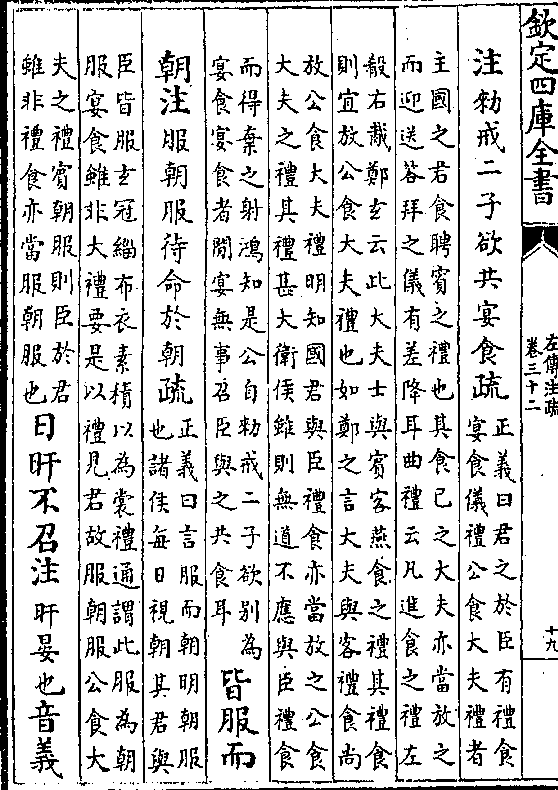 欽定四庫全書
左傳注疏
卷三十二
十九
注勑戒二子欲共宴食疏
正義曰君之於臣有禮食
宴食儀禮公食大夫禮者
主國之君食聘賓之禮也其食已之大夫亦當放之
而迎送答拜之儀有差降耳曲禮云凡進食之禮左
殽右胾鄭玄云此大夫士與賓客燕食之禮其禮食
則宜放公食大夫禮也如鄭之言大夫與客禮食尚
放公食大夫禮明知國君與臣禮食亦當放之公食
大夫之禮其禮甚大衛侯雖則無道不應與臣禮食
而得棄之射鴻知是公自勑戒二子欲别為
宴食宴食者閒宴無事召臣與之共食耳
皆服而
朝注服朝服待命於朝疏
正義曰言服而朝明朝服
也諸侯每日視朝其君與
臣皆服玄冠緇布衣素積以為裳禮通謂此服為朝
服宴食雖非大禮要是以禮見君故服朝服公食大
夫之禮賓朝服則臣於君
雖非禮食亦當服朝服也
日旰不召注旰晏也音義